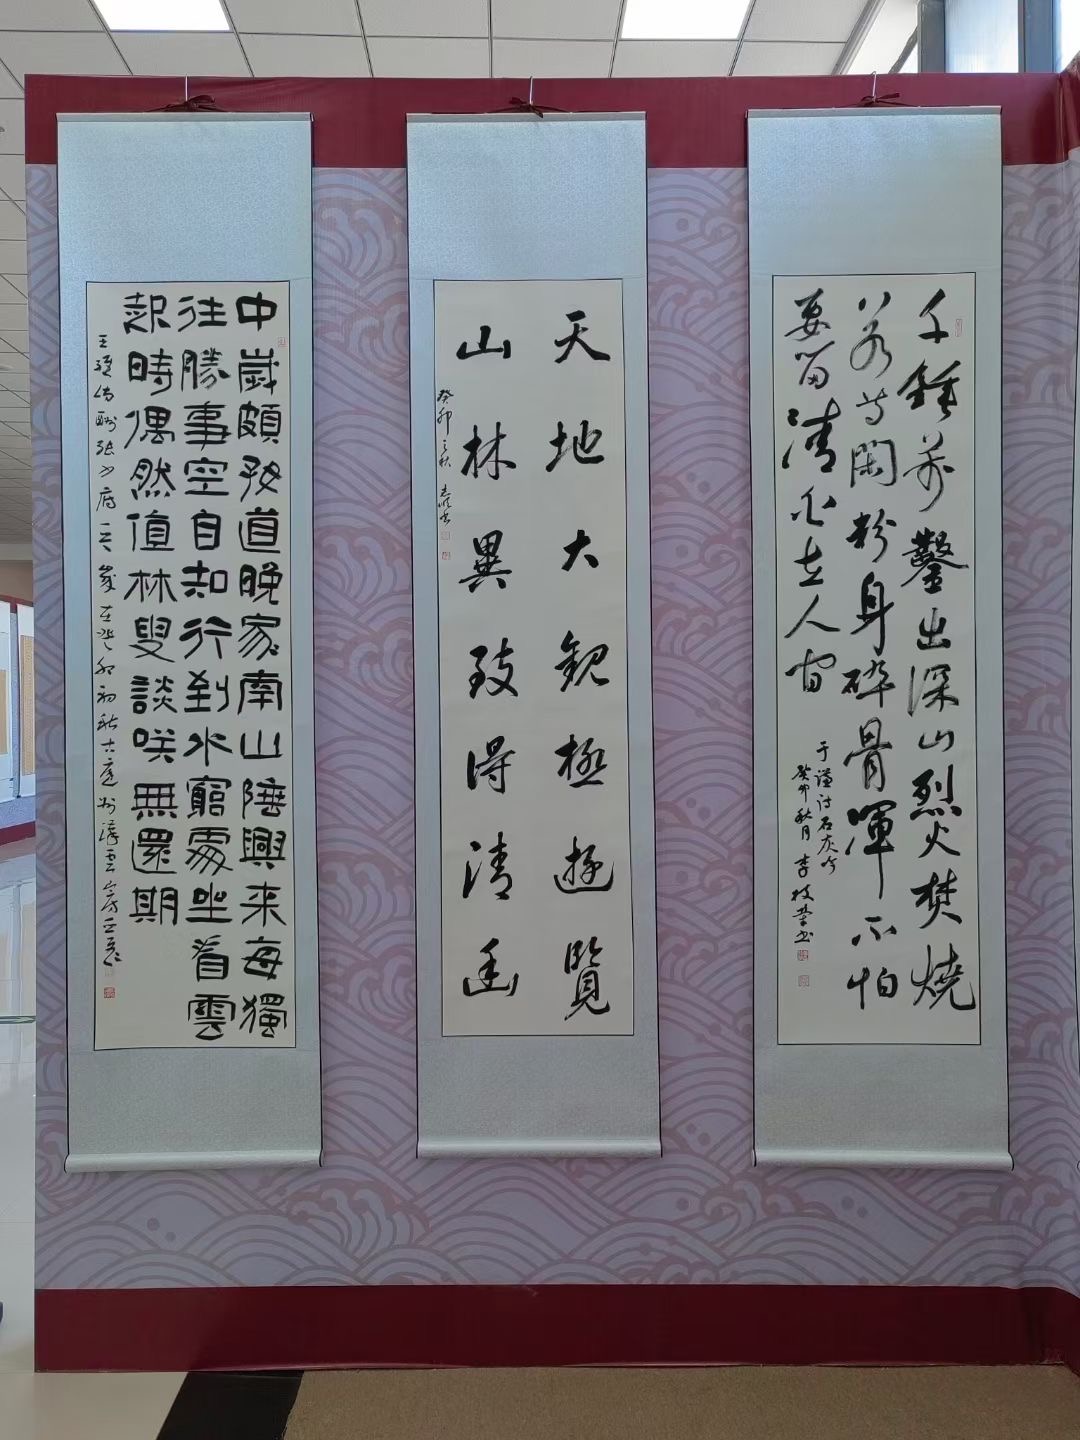 千錘万鑿出深山烈火焚燒
若等閑粉身碎骨渾不怕
要留清白在人间
于谦诗石灰吟
癸卯秋月李枝荣书
天地大觀極遊覽
山林異致得清幽
癸卯之秋
中歲頗好道晚家南山陲興来每獨
往勝事空自知行到水窮處坐看雲
起時偶然值林叟談咲無還期
王維诗酬张少府 歲在癸卯初秋